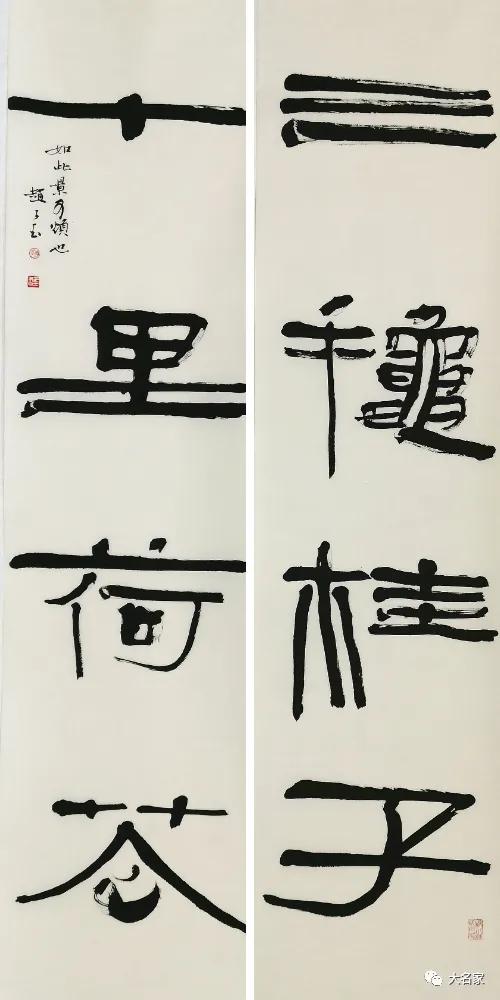 三龝桂子
十里荷花
如此景可頌也
趙
大名家